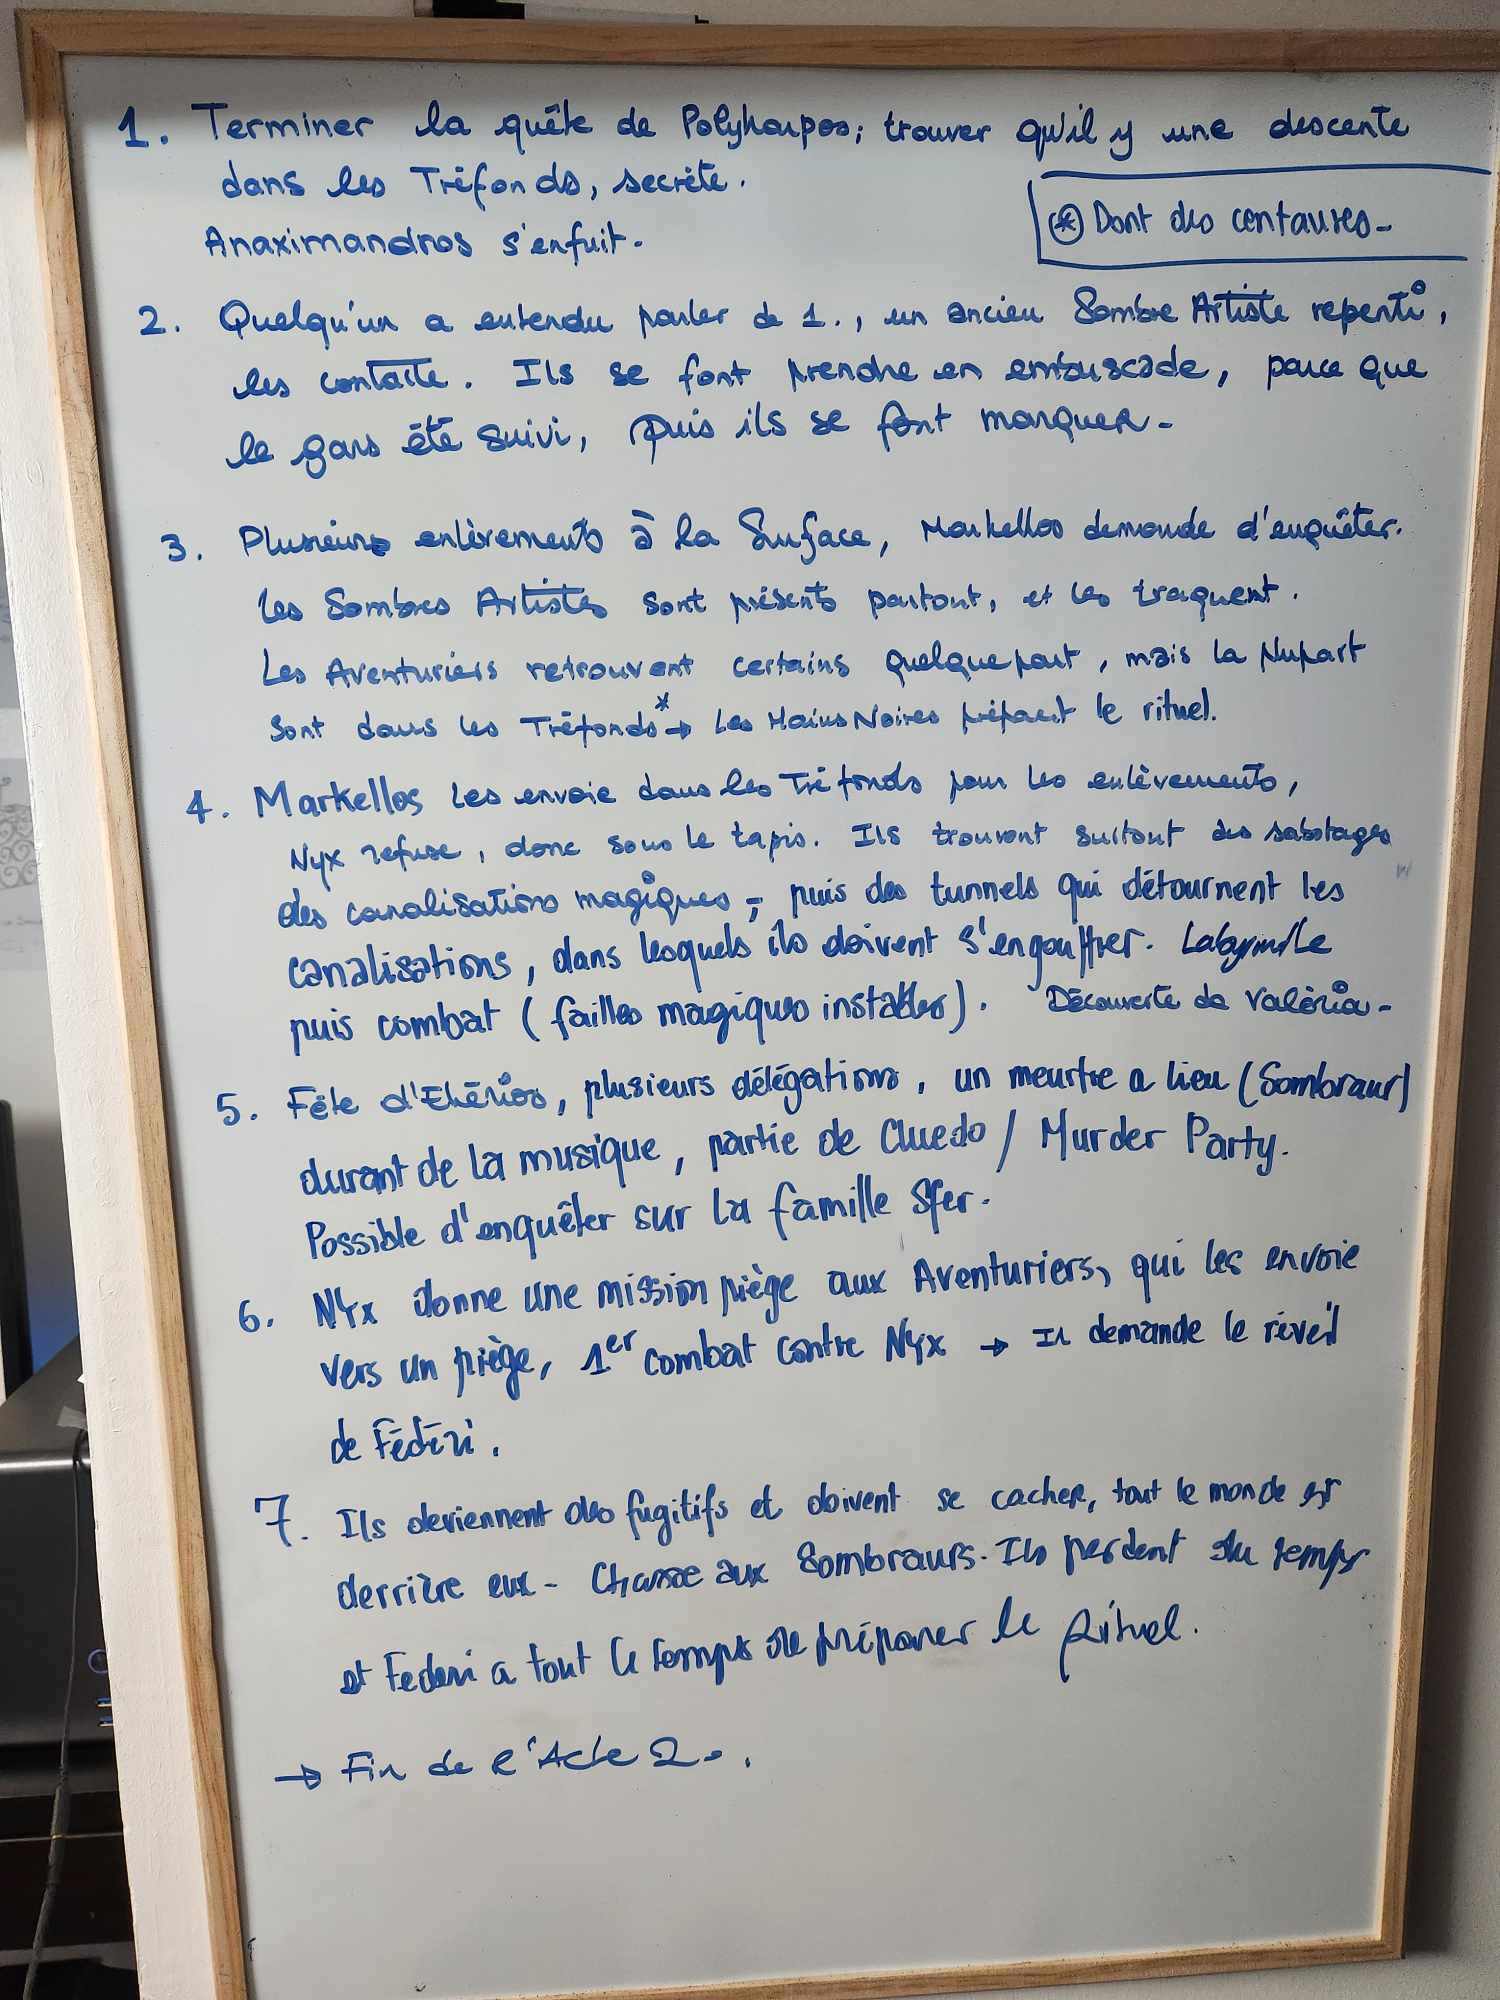 1. Terminer la quête de Polykarpos; trouver qu'il y une descente
dans les Tréfonds, secrète.
Anaximandros s'enfuit.
* Dont des centaures.
2. Quelqu'un a entendu parler de 1., un ancien Sombre Artiste repenti,
les contacte. Ils se font prendre en embuscade, parce que
le gars été suivi, puis ils se font marquer.
3. Plusieurs enlèvements à la Surface, Markellos demande d'enquêter.
Les Sombres Artistes sont présents partout, et les traquent.
Les Aventuriers retrouvent certains quelque part, mais la plupart
sont dans les Tréfonds* → Les Mains Noires prépare le rituel.
4. Markellos les envoie dans les Tréfonds pour les enlèvements,
Nyx refuse, donc sous le tapis. Ils trouvent surtout des sabotages
des canalisations magiques, puis des tunnels qui détournent les
canalisations, dans lesquels ils doivent s'engouffrer. Labyrinthe
puis combat (failles magiques instables). Découverte de Valéria.
5. Fête d'Ehérios, plusieurs délégations, un meurtre a lieu (Sombraur)
durant de la musique, partie de Cluedo / Murder Party.
Possible d'enquêter sur la famille Sfer.
6. Nyx donne une mission piège aux Aventuriers, qui les envoie
vers un piège, 1er combat contre Nyx → Il demande le réveil
de Fédéri.
7. Ils deviennent des fugitifs et doivent se cacher, tout le monde est
derrière eux. Chasse aux Sombraurs. Ils perdent du temps
et Federi a tout le temps de préparer le Rituel.
→ Fin de l'Acte 2.